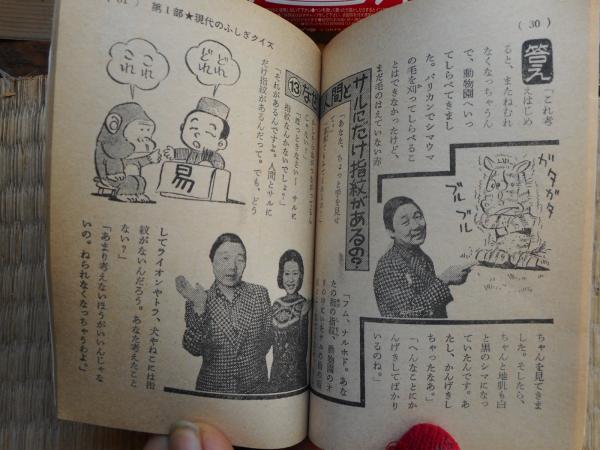 (30)
答え
「これ考
えはじめ
ると、またねむれ
なくなっちゃうん
で、動物園へいっ
てしらべてきまし
た。バリカンでシマウマ
の毛を刈ってしらべるこ
とはできなかったけど、
まだ毛のはえていない赤
ガタガタ
ブルブル
ちゃんを見てきま
した。そしたら、
ちゃんと地肌も白
と黒のシマになっ
ていたんです。あ
たし、かんげきし
ちゃったなあ。」
「へんなことにか
んげきしてばかり
いるのね。」
⑬なぜ人間と
サルにだけ指紋があるの?
「あなた、ちょっと手を見せ
て。」
「フム、ナルホド。あな
たの指の指紋、動物園のオ
第1部★現代のふしぎクイズ
どれどれ
これこれ
易
指紋なんかないでしょ?」
「それがあるんですよ。人間とサルに
だけ指紋があるんだって。でも、どう
してライオンやトラ、犬やねこには指
紋がないんだろう。あなた考えたこと
ない?」
「あまり考えないほうがいいんじゃな
いの。ねられなくなっちゃうわよ。」